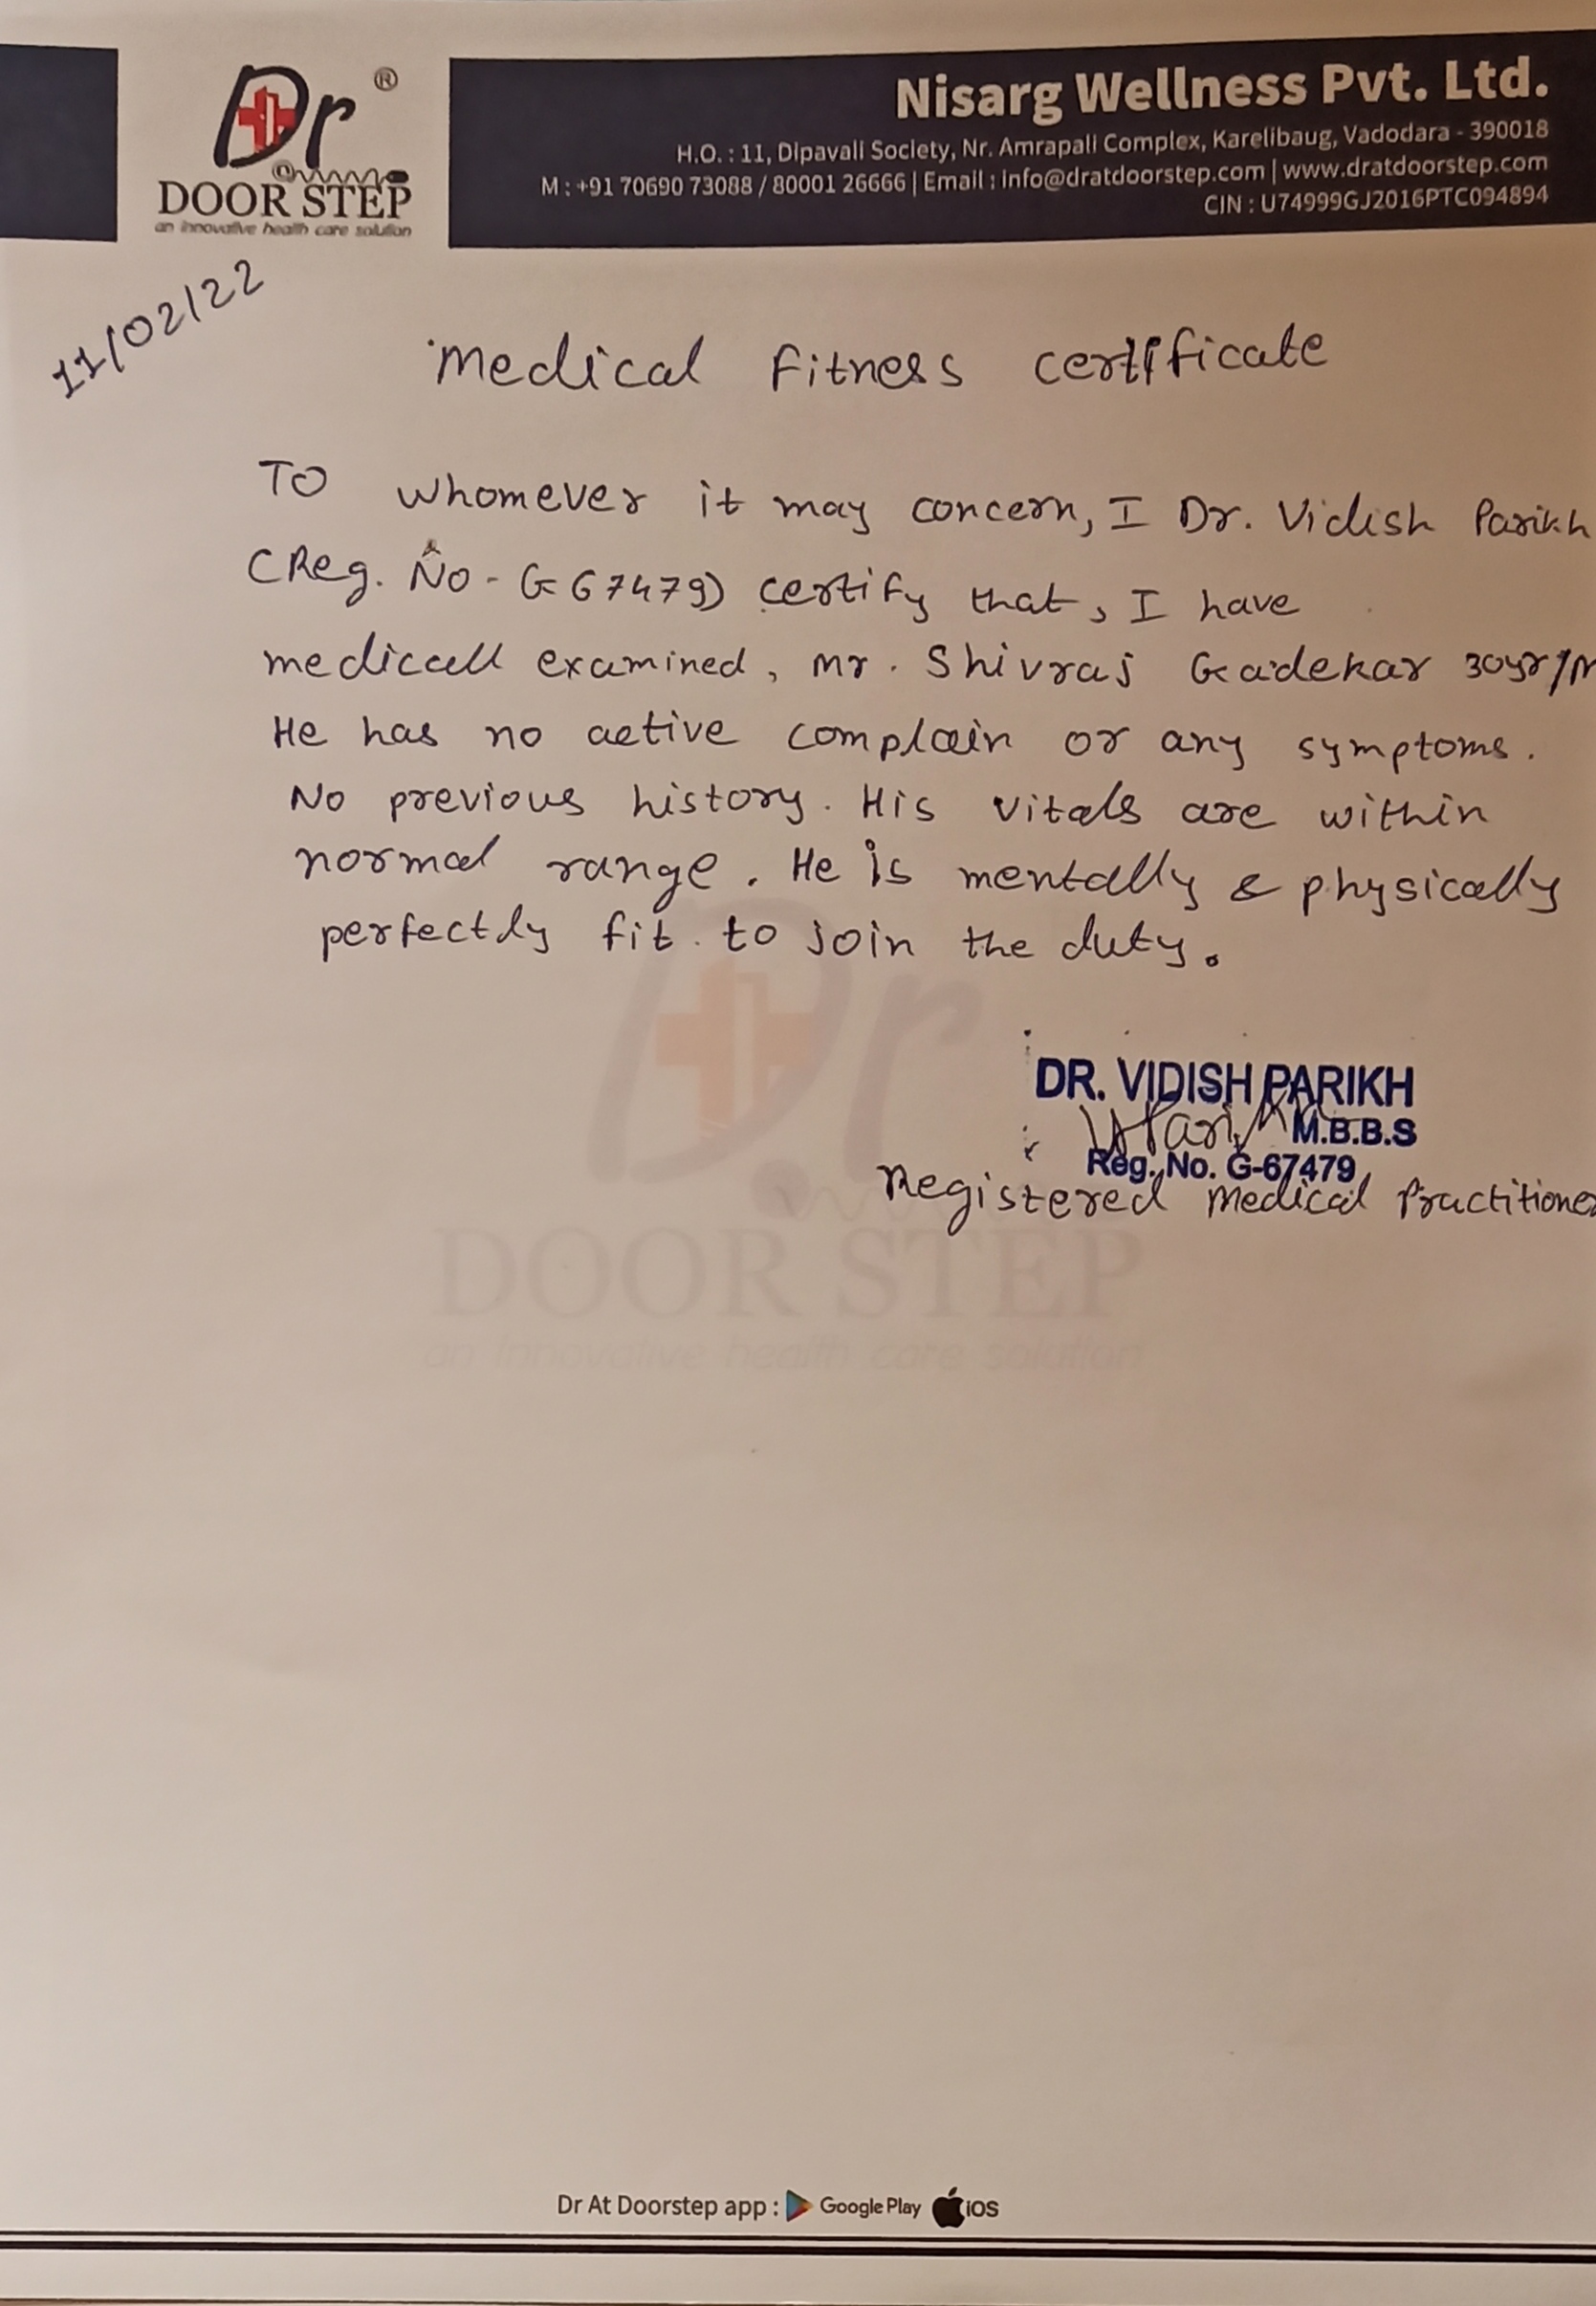 Dr ®
DOOR STEP
an innovative health care solution
Nisarg Wellness Pvt. Ltd.
H.O. : 11, Dipavali Society, Nr. Amrapali Complex, Karelibaug, Vadodara - 390018
M : +91 70690 73088 / 80001 26666 | Email : info@dratdoorstep.com | www.dratdoorstep.com
CIN : U74999GJ2016PTC094894
11/02/22
Medical Fitness certificate
To whomever it may concern, I Dr. Vidish Parikh
(Reg. No - G 67479) certify that, I have
medicall examined, Mr. Shivraj Gadekar 30yr/M
He has no active complain or any symptoms.
No previous history. His vitals are within
normal range. He is mentally & physically
perfectly fit to join the duty.
DR. VIDISH PARIKH
M.B.B.S
Reg. No. G-67479
Registered Medical Practitioner
Dr
DOOR STEP
an innovative health care solution
Dr At Doorstep app : Google Play iOS